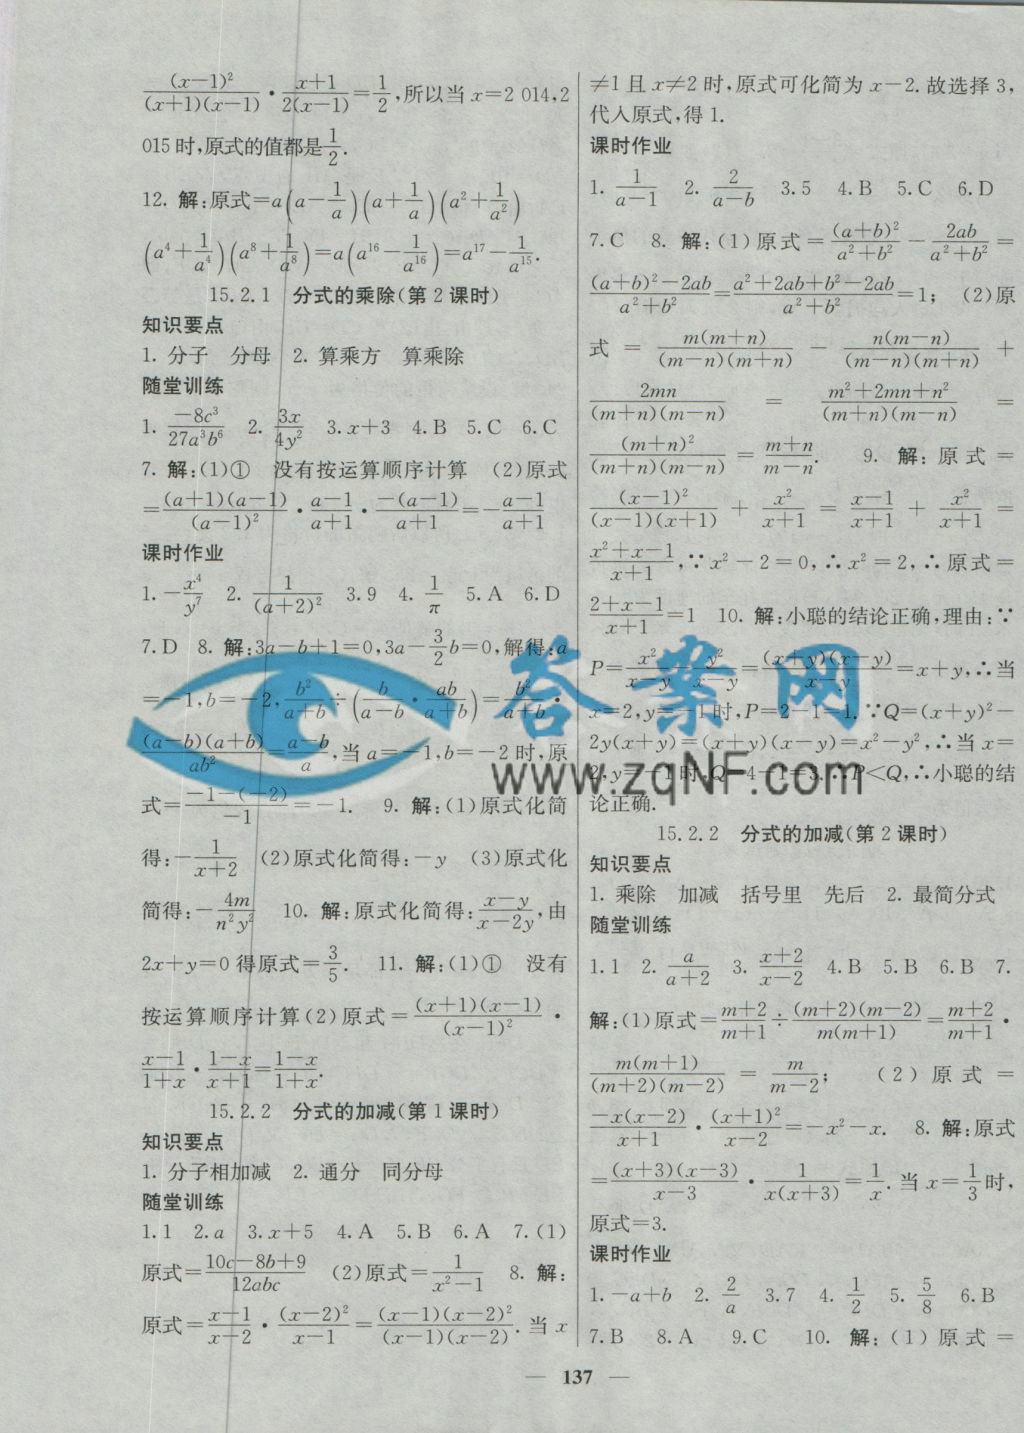 (x-1)²/(x+1)(x-1)·x+1/2(x-1)=1/2,所以当 x=2 014,2
015时,原式的值都是1/2.
12. 解:原式=a(a-1/a)(a+1/a)(a²+1/a²)
(a⁴+1/a⁴)(a⁸+1/a⁸)=a(a¹⁶-1/a¹⁶)=a¹⁷-1/a¹⁵.
15.2.1 分式的乘除(第2课时)
知识要点
1. 分子 分母 2. 算乘方 算乘除
随堂训练
1. -8c³/27a³b⁶ 2. 3x/4y² 3.x+3 4.B 5.C 6.C
7. 解:(1)① 没有按运算顺序计算 (2)原式
=(a+1)(a-1)/(a-1)²·a-1/a+1·-(a-1)/a+1=-a-1/a+1
课时作业
1.-x⁴/y⁷ 2. 1/(a+2)² 3.9 4. 1/π 5.A 6.D
7.D 8. 解:3a-b+1=0,3a-3/2b=0,解得:a
=-1,b=-2,b²/a+b÷(b/a-b·ab/a+b)=b²/a+b·
(a-b)(a+b)/ab²=a-b/a,当a=-1,b=-2时,原
式=-1-(-2)/-1=-1. 9. 解:(1)原式化简
得:-1/x+2 (2)原式化简得:-y (3)原式化
简得:-4m/n²y² 10. 解:原式化简得:x-y/x-2y,由
2x+y=0得原式=3/5. 11. 解:(1)① 没有
按运算顺序计算(2)原式=(x+1)(x-1)/(x-1)²·
x-1/1+x·1-x/x+1=1-x/1+x.
15.2.2 分式的加减(第1课时)
知识要点
1. 分子相加减 2. 通分 同分母
随堂训练
1.1 2.a 3.x+5 4.A 5.B 6.A 7.(1)
原式=10c-8b+9/12abc (2)原式=1/x²-1 8. 解:
原式=x-1/x-2·(x-2)²/x-1=(x-1)(x-2)²/(x-1)(x-2). 当 x
≠1且x≠2时,原式可化简为x-2.故选择3,
代入原式,得1.
课时作业
1. 1/a-1 2. 2/a-b 3.5 4.B 5.C 6.D
7.C 8. 解:(1)原式=(a+b)²/a²+b²-2ab/a²+b²=
(a+b)²-2ab/a²+b²=a²+2ab+b²-2ab/a²+b²=1; (2)原
式=m(m+n)/(m-n)(m+n)-n(m-n)/(m-n)(m+n)+
2mn/(m+n)(m-n)=m²+2mn+n²/(m+n)(m-n)=
(m+n)²/(m+n)(m-n)=m+n/m-n. 9. 解:原式=
(x-1)²/(x-1)(x+1)+x²/x+1=x-1/x+1+x²/x+1=
x²+x-1/x+1,∵x²-2=0,∴x²=2,∴原式=
2+x-1/x+1=1 10. 解:小聪的结论正确,理由:∵
P=x²/x-y-y²/x-y=(x+y)(x-y)/x-y=x+y,∴当
x=2,y=-1时,P=2-1=1.∵Q=(x+y)²-
2y(x+y)=(x+y)(x-y)=x²-y²,∴当x=
2,y=-1时,Q=4-1=3.∴P<Q,∴小聪的结
论正确.
15.2.2 分式的加减(第2课时)
知识要点
1. 乘除 加减 括号里 先后 2. 最简分式
随堂训练
1.1 2. a/a+2 3. x+2/x-2 4.B 5.B 6.B 7.
解:(1)原式=m+2/m+1÷(m+2)(m-2)/m(m+1)=m+2/m+1·
m(m+1)/(m+2)(m-2)=m/m-2; (2)原式=
-x(x-2)/x+1·(x+1)²/x-2=-x²-x. 8. 解:原式
=(x+3)(x-3)/x-3·1/x(x+3)=1/x. 当x=1/3时,
原式=3.
课时作业
1.-a+b 2. 2/a 3.7 4. 1/2 5. 5/8 6.B
7.B 8.A 9.C 10. 解:(1)原式=
— 137 —
答案网
www.zqNF.com